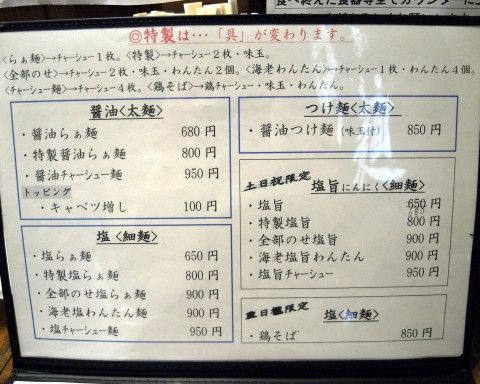 食べ終えた食器等全てカウンターに上
◎特製は…「具」が変わります。
〈らぁ麺〉→チャーシュー１枚。〈特製〉→チャーシュー２枚・味玉。
〈全部のせ〉→チャーシュー２枚・味玉・わんたん２個。〈海老わんたん〉→チャーシュー１枚・わんたん４個。
〈チャーシュー麺〉→チャーシュー４枚。〈鶏そば〉→鶏チャーシュー・味玉・わんたん。
醤油〈太麺〉
・醤油らぁ麺 680 円
・特製醤油らぁ麺 800 円
・醤油チャーシュー麺 950 円
トッピング
・キャベツ増し 100 円
塩〈細麺〉
・塩らぁ麺 650 円
・特製塩らぁ麺 800 円
・全部のせ塩らぁ麺 900 円
・海老塩わんたん麺 900 円
・塩チャーシュー麺 950 円
つけ麺〈太麺〉
・醤油つけ麺(味玉付) 850 円
土日祝限定 塩旨にんにく〈細麺〉
・塩旨 650 円
・特製塩旨 800 円
・全部のせ塩旨 900 円
・海老塩旨わんたん 900 円
・塩旨チャーシュー 950 円
限定 塩〈細麺〉
・鶏そば 850 円